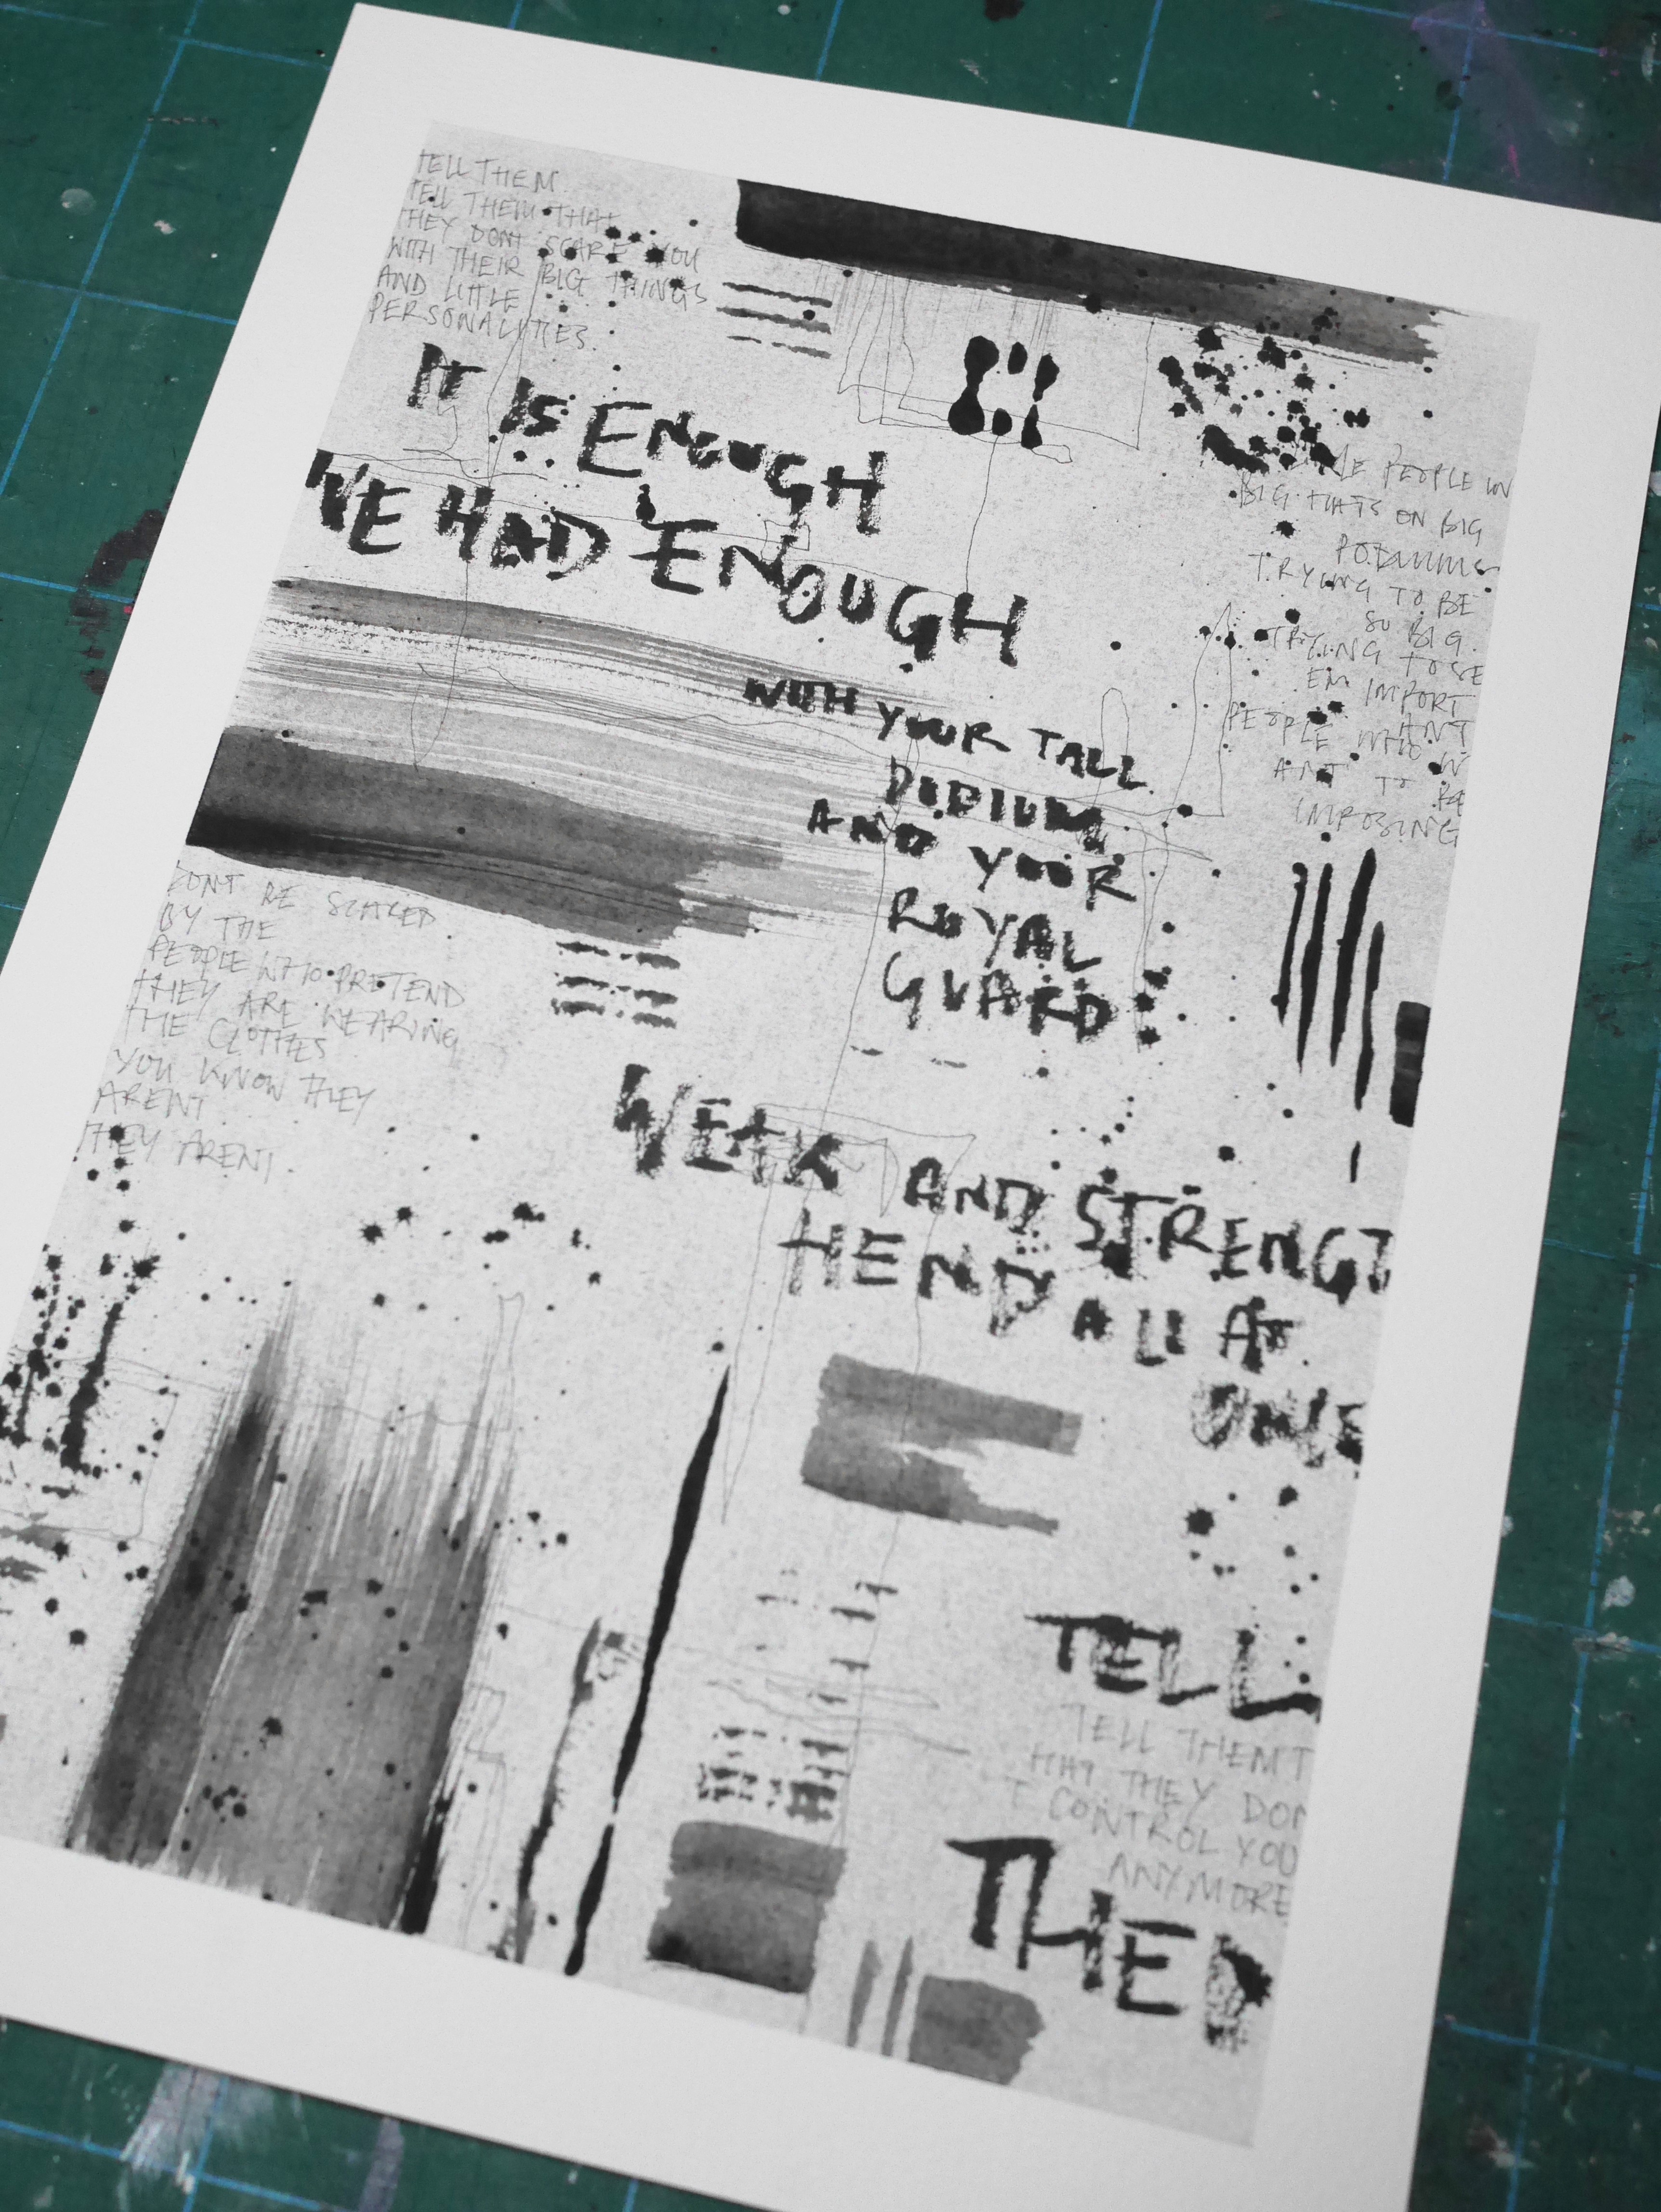 TELL THEM
TELL THEM THAT
THEY DONT SCARE YOU
WITH THEIR BIG THINGS
AND LITTLE
PERSONALITIES.
IT IS ENOUGH
I'VE HAD ENOUGH
WITH YOUR TALL
PODIUM
AND YOUR
ROYAL
GUARD
PEOPLE IN
BIG HATS ON BIG
PODIUMS
TRYING TO BE
SO BIG.
TRYING TO SE
EM IMPORT
ANT
PEOPLE WHO W
ANT TO BE
IMPOSING
DONT BE SCARED
BY THE
PEOPLE WHO PRETEND
THEY ARE WEARING
THE CLOTHES
YOU KNOW THEY
ARENT
THEY ARENT.
WEAK AND STRENGT
HEND ALL AT
ONE
TELL
TELL THEM T
HAT THEY DON
T CONTROL YOU
ANYMORE
THE